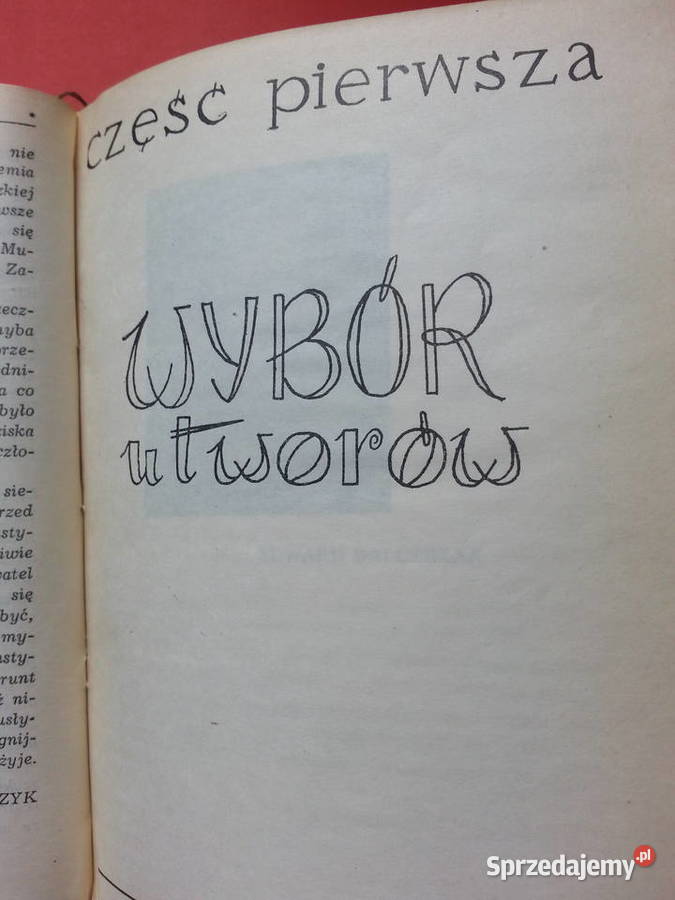 nie
emia
zkiej
wsze
się
Mu-
Za-
zecz-
hyba
orze-
dni-
a co
było
iska
czło-
sie-
rzed
sty-
iwie
vatel
się
być,
my-
nsty-
runt
ż ni-
usły-
gnij-
żyje.
ZYK
część pierwsza
WYBÓR
utworów
Sprzedajemy.pl